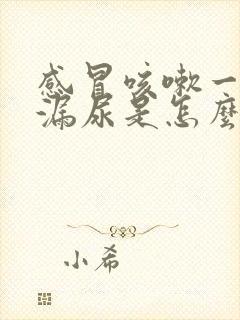 感冒咳嗽一
漏尿是怎麼
小希